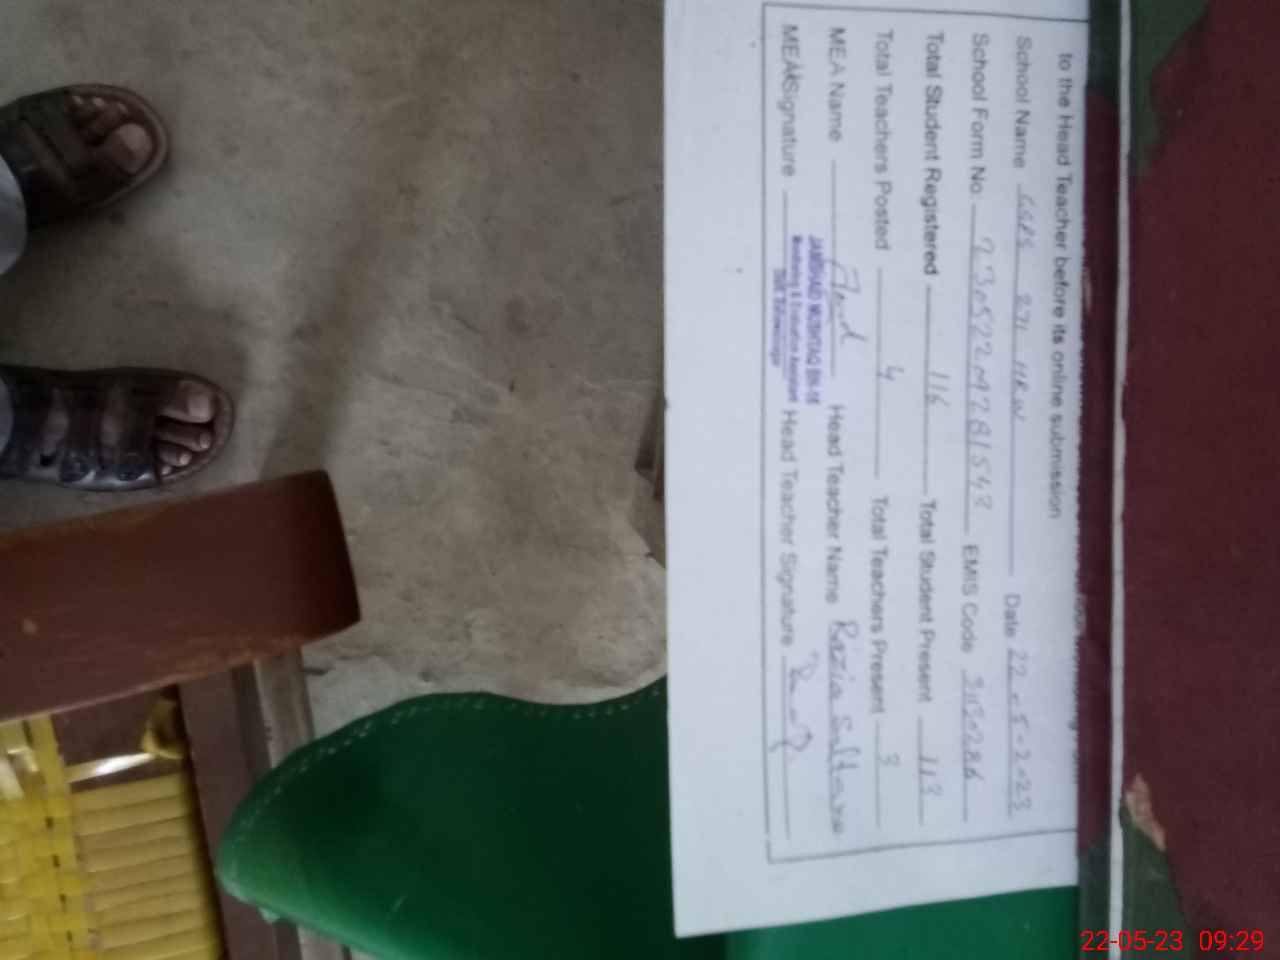 to the Head Teacher before its online submission
School Name GGPS 271 HRW Date 22-5-2023
School Form No. 230522097281543 EMIS Code 31130286
Total Student Registered 116 Total Student Present 113
Total Teachers Posted 4 Total Teachers Present 3
MEA Name Head Teacher Name Razia Sultana
JAMSHAID MUSHTAQ
Monitoring & Evaluation Assistant
MEA Signature Head Teacher Signature
22-05-23 09:29